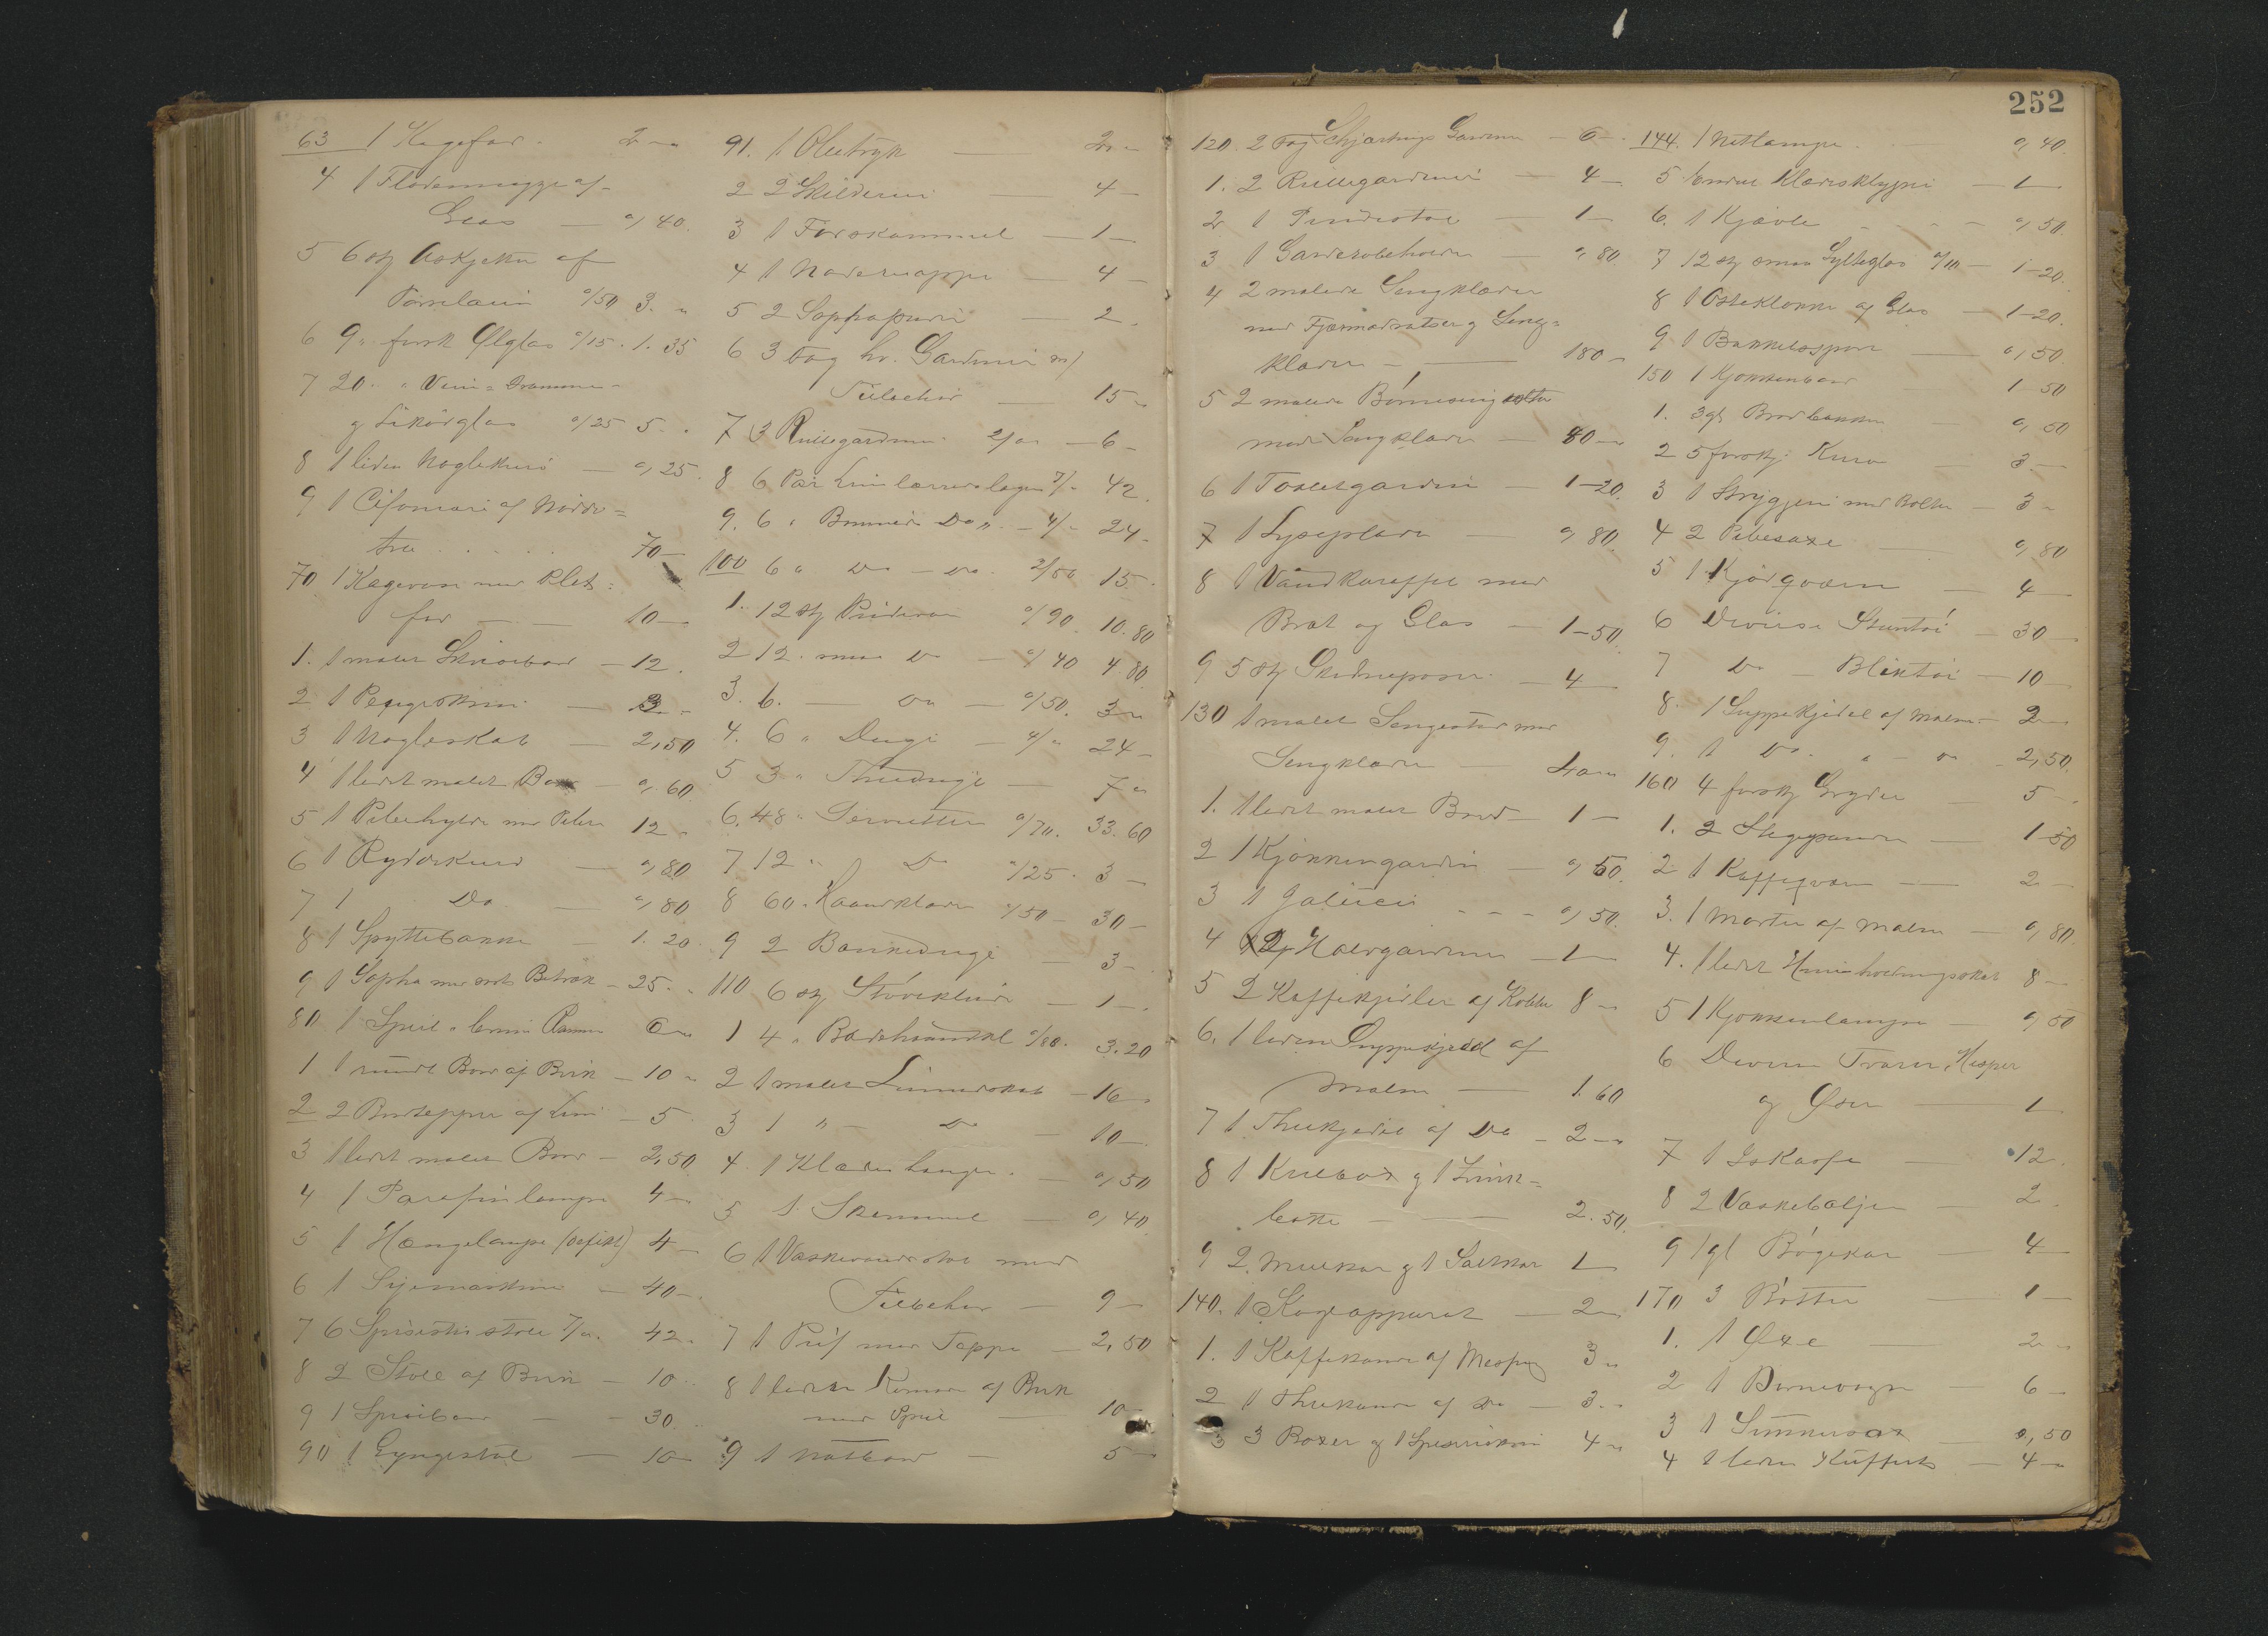 63 1 Kagefad 2 -
4 1 Flødemugge af
Glas - 0,40.
5 6 stk Askjetter af
Porcelain 0/50 3. "
6 9 " forsk Ølglas 0/15 1.35
7 20 " Vin= Dramme-
g Likörglas 0/25 5. "
8 1 liden Noglekurv - 0,25.
9 1 Cifoniere af Nödde=
træ 70 -
70. 1 Kagevase med Plet=
fod 10 -
1. 1 malet Skrivebord - 12.
2 1 3 -
3 1 Nogleskab - 2,50
4 1 lidet malet Bord - 0,60
5 1 Pibehylde med Piber 12 "
6 1 Rydekurv - 0,80
7 1 Do - 0,80
8 1 Spyttebakke - 1.20
9 1 Sopha med rødt Betræk - 25. "
80 1 Speil i brun Ramme 6 -
1 1 rundt Bord af Birk - 10 "
2 2 Bordtepper af Lin - 5
3 1 lidet malet Bord - 2,50
4 1 Parafinlampe 4 -
5 1 Hængelampe (defekt) 4 -
6 1 Symaskine - 40 -
7 6 Spisestuestole 7/" 42 "
8 2 Stole af Birk - 10 "
9 1 Spisebord - 30.
90 1 Gyngestol - 10 -
91. 1 Olietryk - 2 " -
2 2 Skilderier - 4 -
3 1 Fodskammel - 1 -
4 1 Nodemappe - 4 -
5 2 Sophapuder - 2.
6 3 Fag hv. Gardiner m/
Tilbehør - 15 "
7 3 Rullegardiner 2/" - 6 -
8 6 Par Linlærredslagen 7/" 42.
9. 6 " Bommulds Do " - 4/" 24 -
100 6 " Do - Do 2/50 15.
1. 12 stk Pudevar 0/90 10.80
2 12 " smaa Do - 0/40 4.80
3. 6. - Do - 0/50. 3 "
4. 6 " Duge - 4/" 24 -
5 3 " Theduge - 7 "
6. 48 " Servietter 0/70. 33.60
7 12 " Do 0/25. 3 -
8 60 " Haandklæder 0/50 - 30 -
9 2 Bakkeduge - 3 -
110 6 stk Støvekluder - 1 -
1 4 " Badehaandkl. 0/80. 3.20
2 1 malet Linnedskab - 16 -
3 1 " - Do - 10 -
4. 1 Klædeshænger - 0,50
5 1 Skammel - 0,40
6 1 Vaskevandsstol med
Tilbehør - 9 -
7 1 Puf med Teppe - 2,50
8 1 liden Komode af Birk
med Speil - 10 -
9 1 Natbord - 5 -
252
120. 2 Fag Gardiner - 6 -
1. 2 Rullegardiner - 4 -
2 1 Pindestol - 1 -
3 1 Garderobeholder - 0,80
4 2 malede
med Fjærmadratser g Seng=
klæder - 180 -
5 2 malede Børnesenge
med Sengklæder - 80 -
6 1 Toiletgardin - 1-20.
7 1 Lyseplade - 0,80.
8 1 Vandkaraffel med
Bræt og Glas - 1-50.
9 5 stk - 4 -
130 1 malet Sengested med
Sengklæder - 40 "
1. 1 lidet malet Bord - 1 -
2 1 Kjøkkengardin - 0,50.
3 1 Jalusi - - - 0,50.
4 2 Halvgardiner - 1 -
5 2 Kaffekjedler af Kobber 8 -
6. 1 liden Suppekjedel af
Malm - 1.60
7 1 Thekjedel af Do - 2 -
8 1 Kulbox g 1 Zink=
bøtte - 2.50.
9 2 Melkar g 1 Saltkar 1 -
140. 1 Kogeapparat - 2 -
1. 1 Kaffekande af Messing 3 "
2 1 Thekande af Do - 3. "
3 3 Boxer g 1 4 "
144. 1 Natlampe 0,40.
5 Endel Klædesklyper - 1 -
6. 1 Kjævle - 0,50.
7 12 stk smaa Sylteglas 0/10 - 1-20.
8 1 Osteklokke af Glas - 1-20.
9 1 - 0,50.
150 1 Kjøkkenbord 1-50
1. 3 gl Brødbakker 0,50
2 5 forskj. Kurve - 3 -
3 1 Strygjern med Bolter - 3 "
4 2 0,80
5 1 Kjødqværn - 4 -
6 Diverse Stentøi - 30 -
7 Do - Bliktøi - 10 -
8. 1 Suppekjedel af Malm - 2 -
9. 1 Do " - Do - 2,50.
160 4 forskj Gryder - 5 -
1. 2 Stegepander - 1-50
2 1 Kaffeqværn - 2 -
3. 1 Morter af Malm - 0,80.
4. 1 lidet Husholdningsskab 8 -
5 1 Kjøkkenlampe - 0,50
6 Diverse Tvarer, Hesper
g Øser - 1
7 1 - 12.
8 2 Vaskebaljer - 2.
9 1 gl Bøgekar - 4 -
170 3 Bøtter - 1 -
1. 1 Øxe - 2 "
2 1 Barnevogn - 6 -
3 1 - 0,50
4 1 liden Kuffert - 4 "